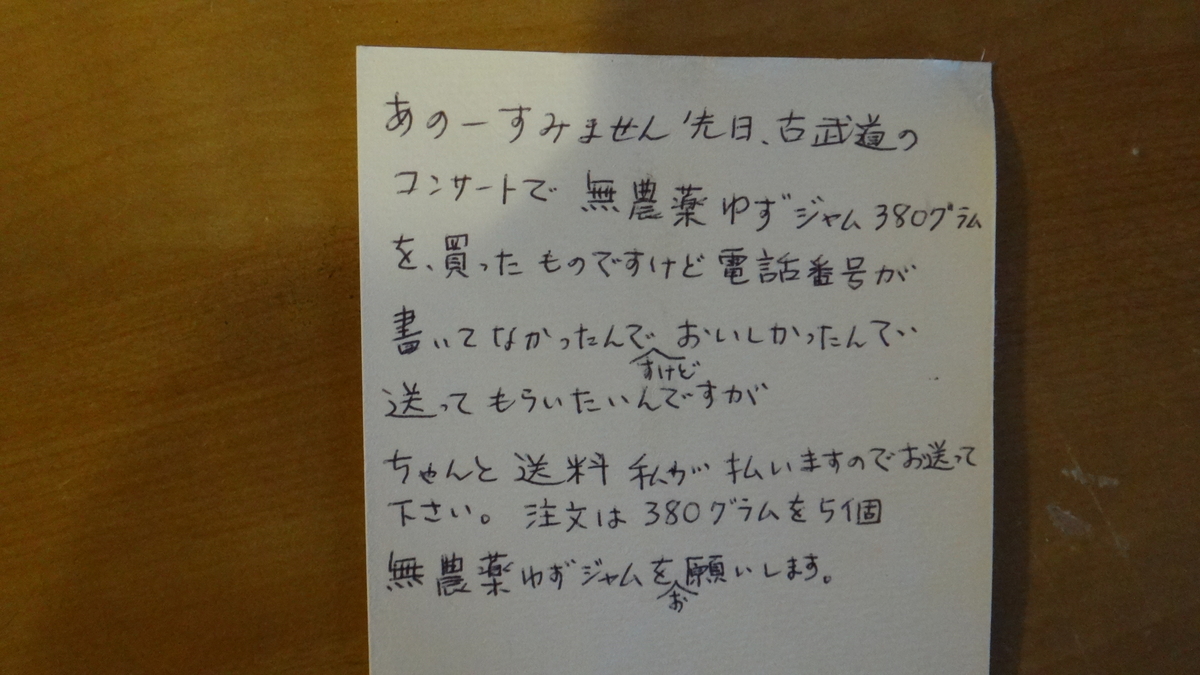 あのーすみません先日、古武道の
コンサートで 無農薬ゆずジャム380グラム
を、買ったものですけど電話番号が
書いてなかったんですけど おいしかったんでい
送ってもらいたいんですが
ちゃんと送料 私が払いますのでお送って
下さい。注文は380グラムを5個
無農薬ゆずジャムをお願いします。